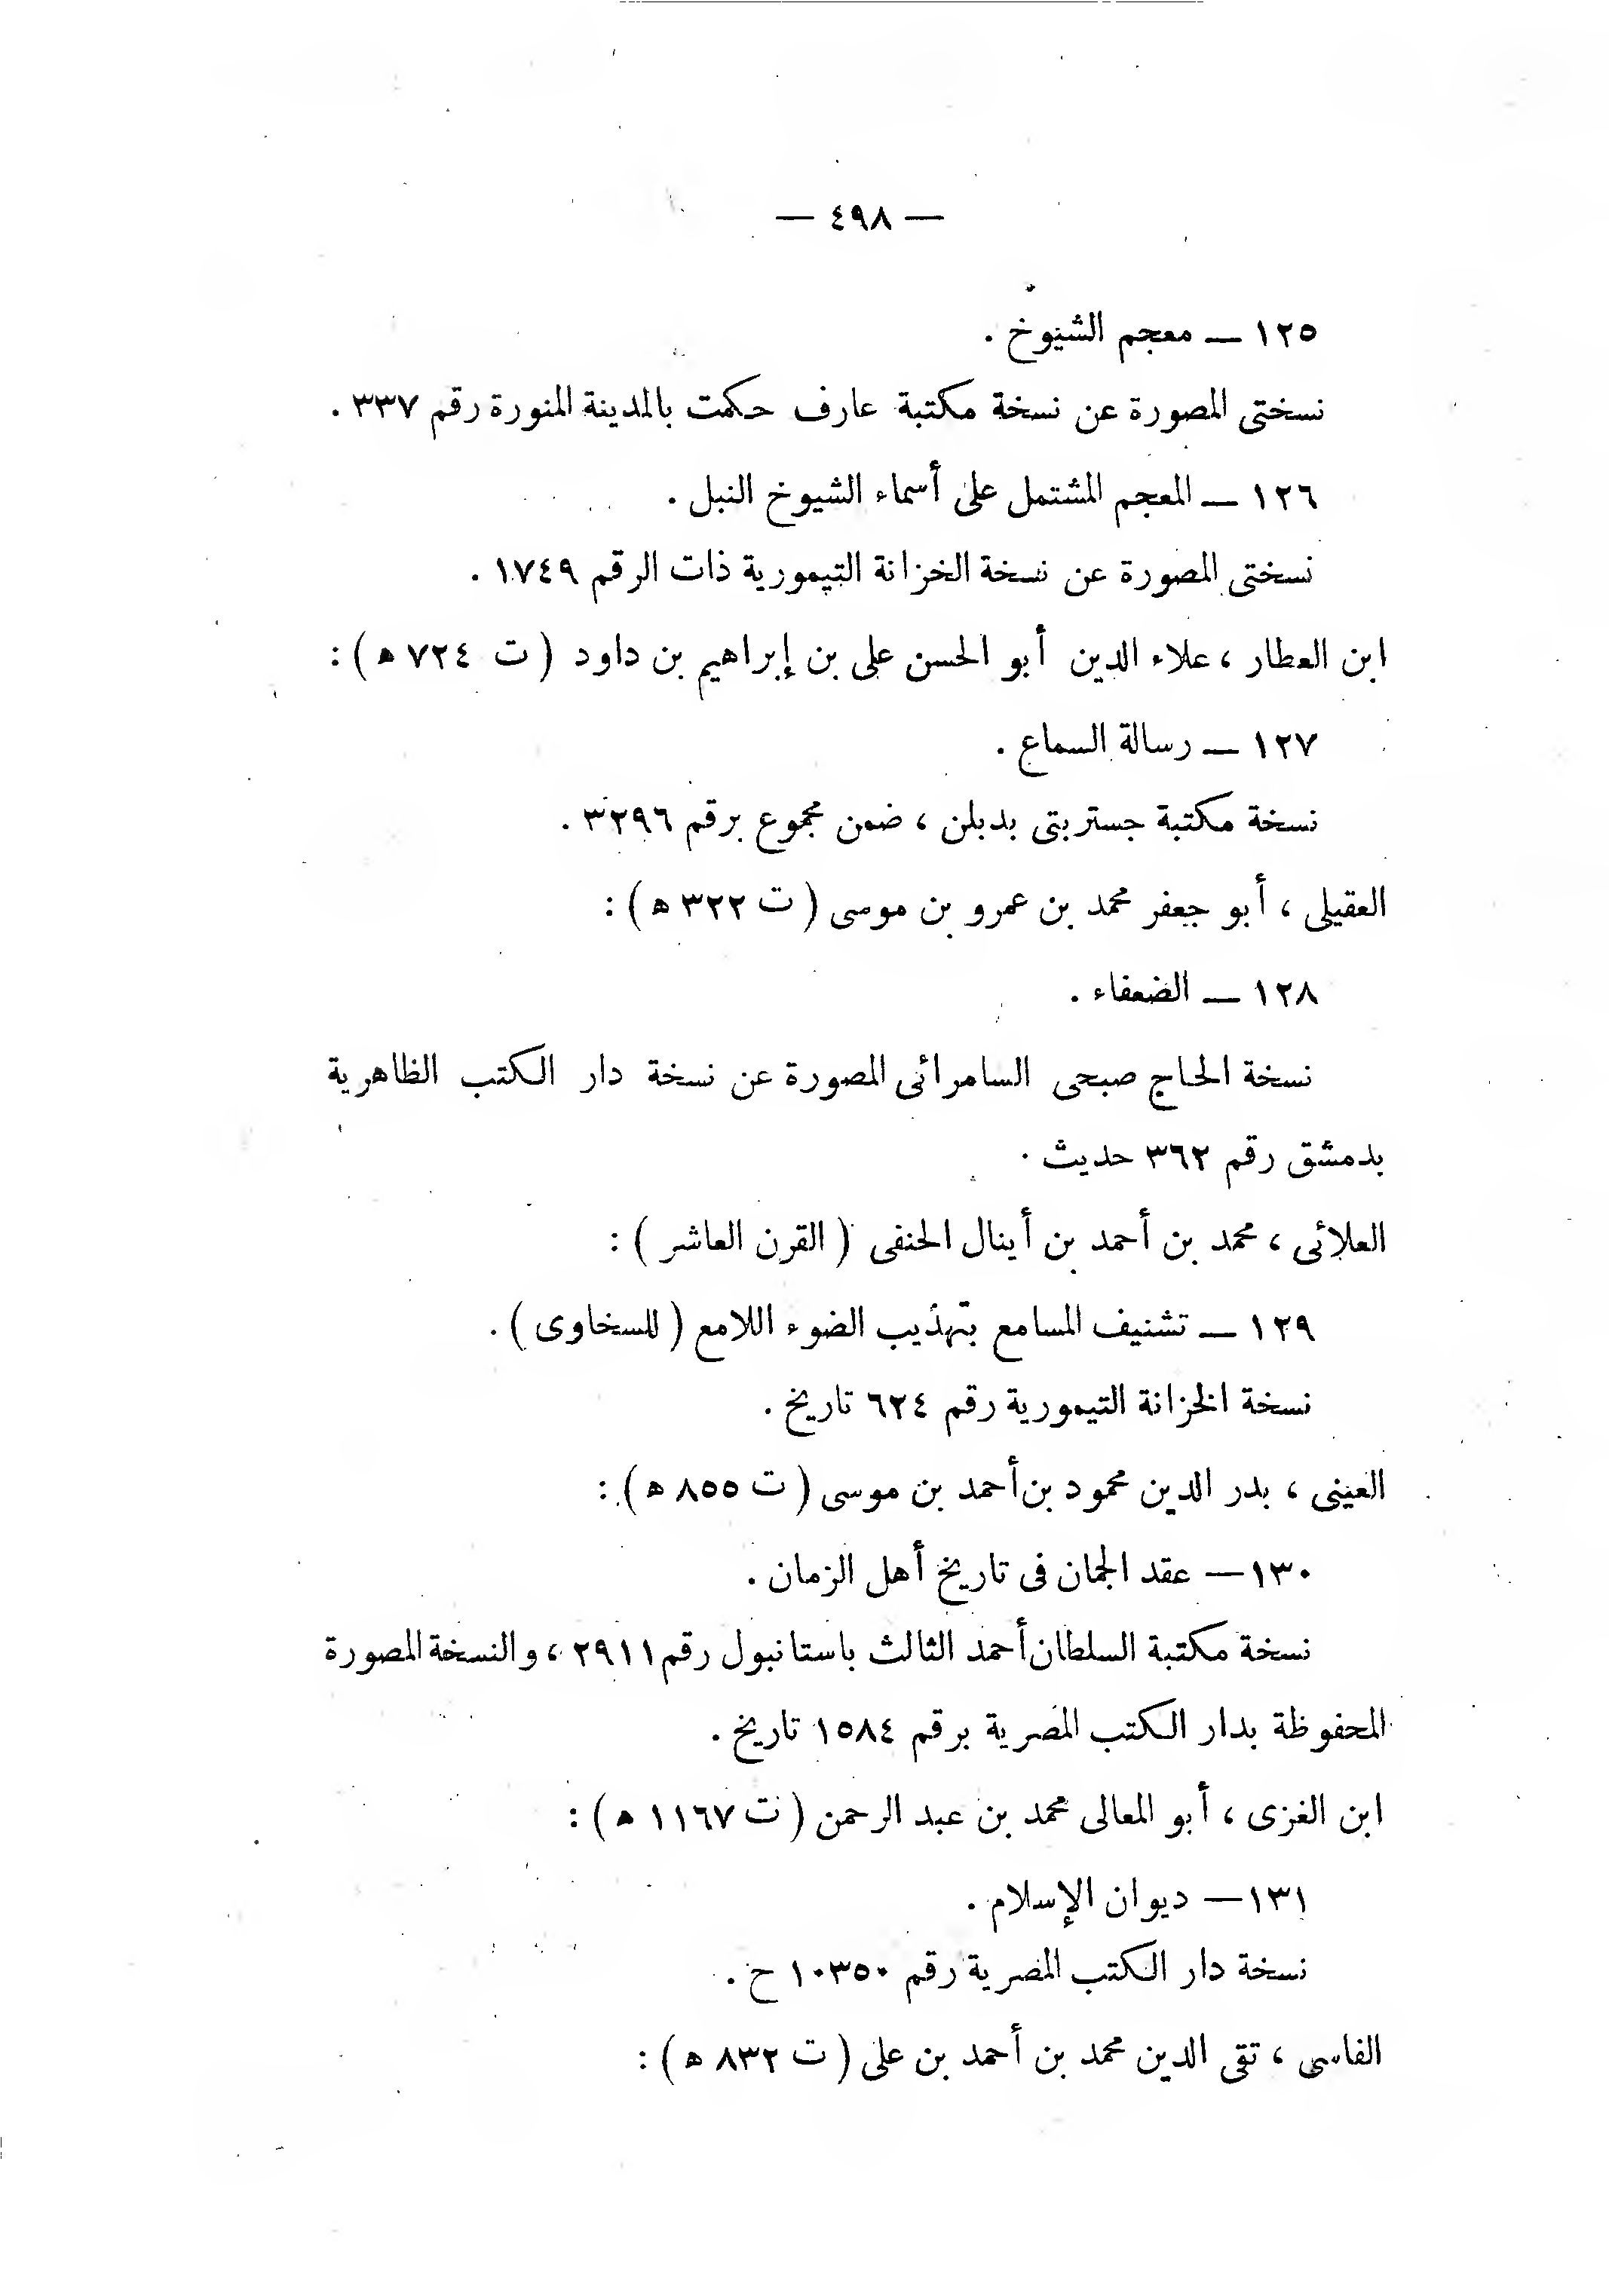 — ٤٩٨ —
١٢٥ — معجم الشيوخ .
نسختى المصورة عن نسخة مكتبة عارف حكمت بالمدينة المنورة رقم ٣٣٧ .
١٢٦ — المعجم المشتمل على أسماء الشيوخ النبل .
نسختى المصورة عن نسخة الخزانة التيمورية ذات الرقم ١٧٤٩ .
ابن العطار ، علاء الدين أبو الحسن على بن إبراهيم بن داود ( ت ٧٢٤ ه ) :
١٢٧ — رسالة السماع .
نسخة مكتبة جستربتى بدبلن ، ضمن مجموع برقم ٣٢٩٦ .
العقيلى ، أبو جعفر محمد بن عمرو بن موسى ( ت ٣٢٢ ه ) :
١٢٨ — الضعفاء .
نسخة الحاج صبحى السامرائى المصورة عن نسخة دار الكتب الظاهرية
بدمشق رقم ٣٦٢ حديث .
العلائى ، محمد بن أحمد بن أينال الحنفى ( القرن العاشر ) :
١٢٩ — تشنيف المسامع بتهذيب الضوء اللامع ( للسخاوى ) .
نسخة الخزانة التيمورية رقم ٦٢٤ تاريخ .
العينى ، بدر الدين محمود بن أحمد بن موسى ( ت ٨٥٥ ه ) :
١٣٠ — عقد الجمان فى تاريخ أهل الزمان .
نسخة مكتبة السلطان أحمد الثالث باستانبول رقم ٢٩١١ ، والنسخة المصورة
المحفوظة بدار الكتب المصرية برقم ١٥٨٤ تاريخ .
ابن الغزى ، أبو المعالى محمد بن عبد الرحمن ( ت ١١٦٧ ه ) :
١٣١ — ديوان الإسلام .
نسخة دار الكتب المصرية رقم ١٠٣٥٠ ح .
الفاسى ، تقى الدين محمد بن أحمد بن على ( ت ٨٣٢ ه ) :